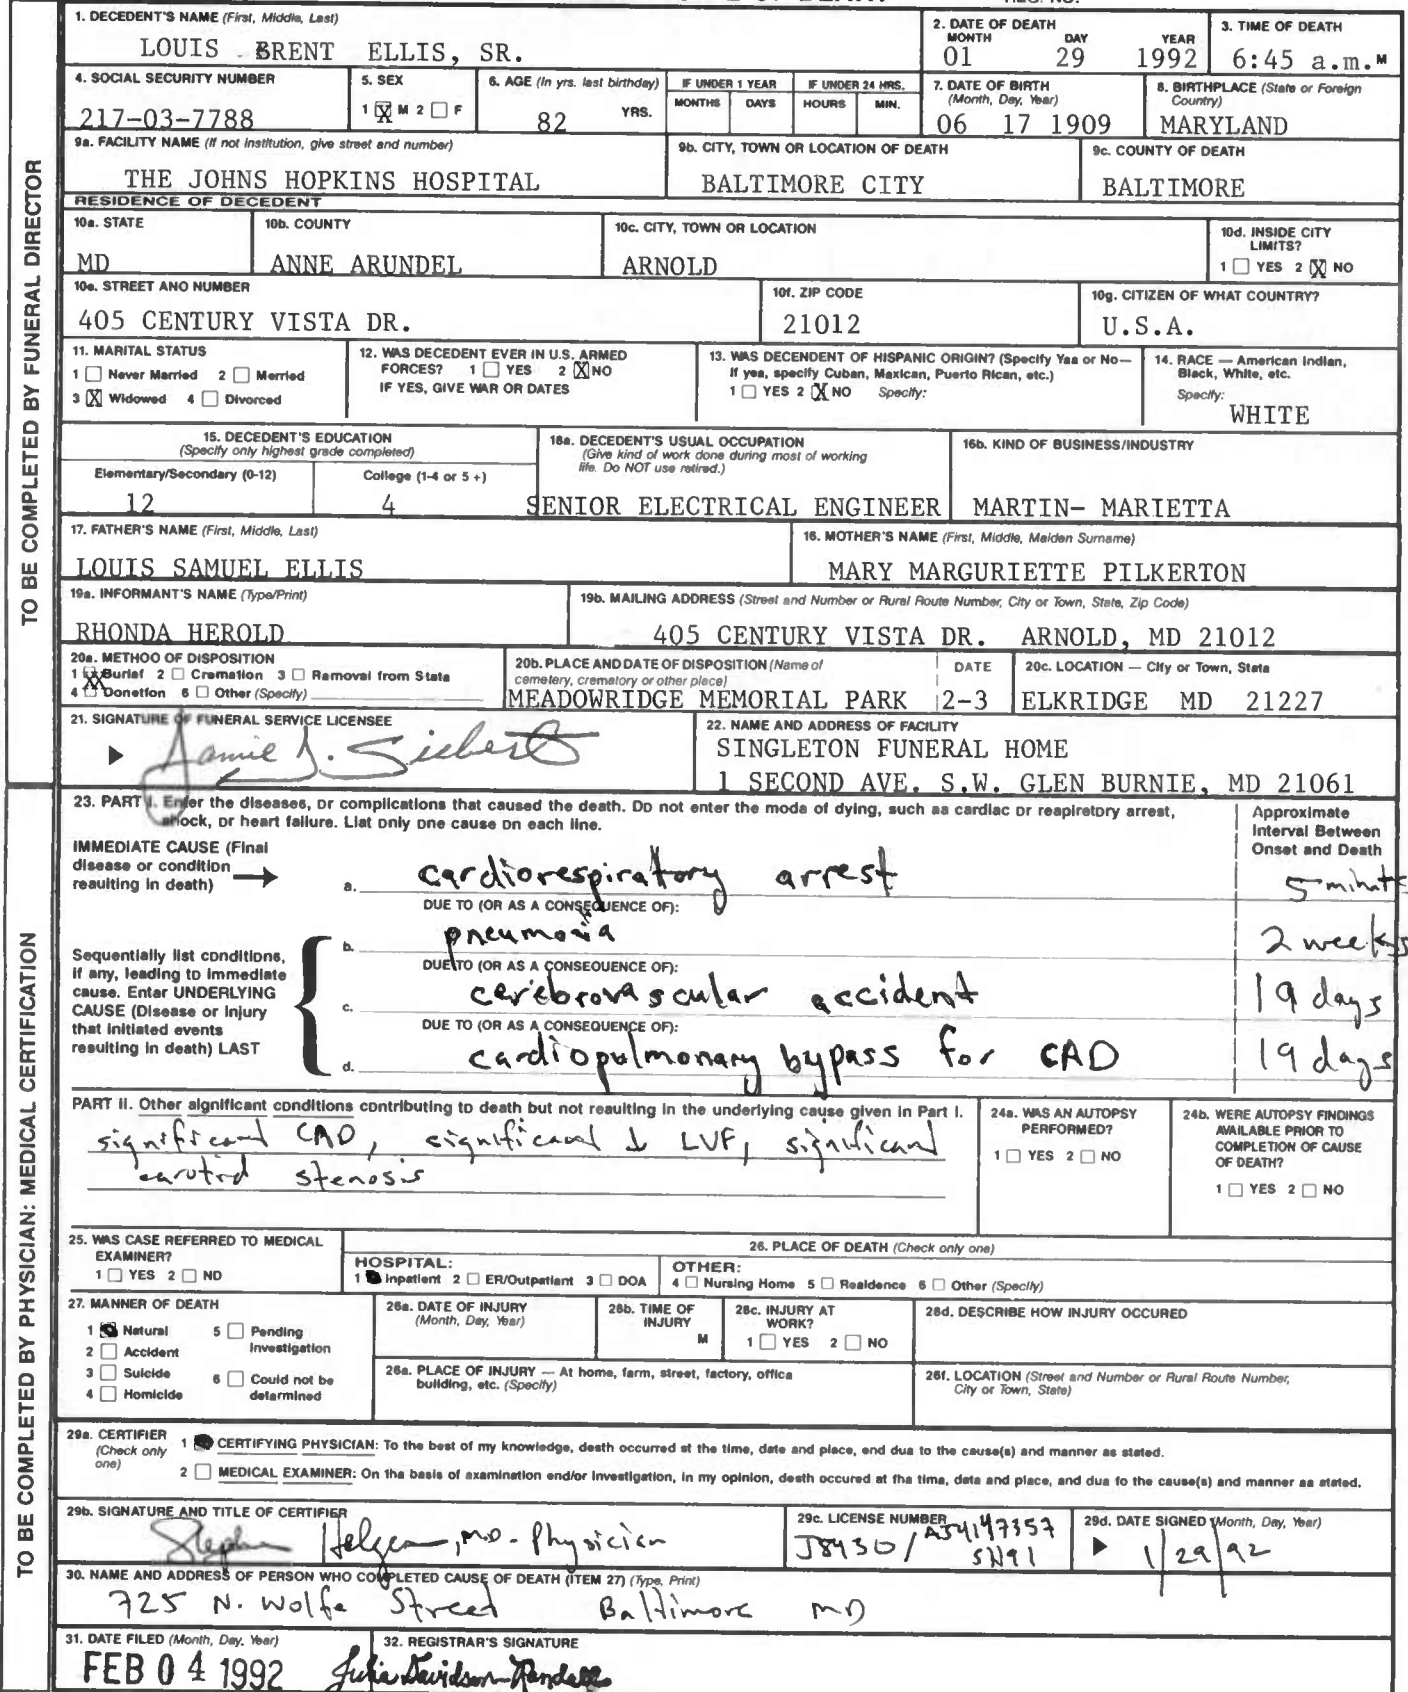 1. DECEDENT'S NAME (First, Middle, Last)
LOUIS BRENT ELLIS, SR.
2. DATE OF DEATH
MONTH DAY YEAR
01 29 1992
3. TIME OF DEATH
6:45 a.m. M
4. SOCIAL SECURITY NUMBER
217-03-7788
5. SEX
1 X M 2 ☐ F
6. AGE (In yrs. last birthday)
82 YRS.
IF UNDER 1 YEAR
MONTHS DAYS
IF UNDER 24 HRS.
HOURS MIN.
7. DATE OF BIRTH
(Month, Day, Year)
06 17 1909
8. BIRTHPLACE (State or Foreign
Country)
MARYLAND
9a. FACILITY NAME (If not institution, give street and number)
THE JOHNS HOPKINS HOSPITAL
9b. CITY, TOWN OR LOCATION OF DEATH
BALTIMORE CITY
9c. COUNTY OF DEATH
BALTIMORE
RESIDENCE OF DECEDENT
10a. STATE
MD
10b. COUNTY
ANNE ARUNDEL
10c. CITY, TOWN OR LOCATION
ARNOLD
10d. INSIDE CITY
LIMITS?
1 ☐ YES 2 X NO
10e. STREET AND NUMBER
405 CENTURY VISTA DR.
10f. ZIP CODE
21012
10g. CITIZEN OF WHAT COUNTRY?
U.S.A.
11. MARITAL STATUS
1 ☐ Never Married 2 ☐ Married
3 X Widowed 4 ☐ Divorced
12. WAS DECEDENT EVER IN U.S. ARMED
FORCES? 1 ☐ YES 2 X NO
IF YES, GIVE WAR OR DATES
13. WAS DECENDENT OF HISPANIC ORIGIN? (Specify Yes or No—
If yes, specify Cuban, Mexican, Puerto Rican, etc.)
1 ☐ YES 2 X NO Specify:
14. RACE — American Indian,
Black, White, etc.
Specify:
WHITE
15. DECEDENT'S EDUCATION
(Specify only highest grade completed)
Elementary/Secondary (0-12) College (1-4 or 5 +)
12 4
16a. DECEDENT'S USUAL OCCUPATION
(Give kind of work done during most of working
life. Do NOT use retired.)
SENIOR ELECTRICAL ENGINEER
16b. KIND OF BUSINESS/INDUSTRY
MARTIN- MARIETTA
17. FATHER'S NAME (First, Middle, Last)
LOUIS SAMUEL ELLIS
18. MOTHER'S NAME (First, Middle, Maiden Surname)
MARY MARGURIETTE PILKERTON
19a. INFORMANT'S NAME (Type/Print)
RHONDA HEROLD
19b. MAILING ADDRESS (Street and Number or Rural Route Number, City or Town, State, Zip Code)
405 CENTURY VISTA DR. ARNOLD, MD 21012
20a. METHOD OF DISPOSITION
1 XX Burial 2 ☐ Cremation 3 ☐ Removal from State
4 ☐ Donation 6 ☐ Other (Specify)
20b. PLACE AND DATE OF DISPOSITION (Name of
cemetery, crematory or other place)
MEADOWRIDGE MEMORIAL PARK
DATE
2-3
20c. LOCATION — City or Town, State
ELKRIDGE MD 21227
21. SIGNATURE OF FUNERAL SERVICE LICENSEE
Jamie J. Siebert
22. NAME AND ADDRESS OF FACILITY
SINGLETON FUNERAL HOME
1 SECOND AVE. S.W. GLEN BURNIE, MD 21061
TO BE COMPLETED BY FUNERAL DIRECTOR
23. PART I. Enter the diseases, or complications that caused the death. Do not enter the mode of dying, such as cardiac or respiratory arrest,
shock, or heart failure. List only one cause on each line.
Approximate
Interval Between
Onset and Death
IMMEDIATE CAUSE (Final
disease or condition
resulting in death)
a. cardiorespiratory arrest 5 minutes
DUE TO (OR AS A CONSEQUENCE OF):
b. pneumonia 2 weeks
DUE TO (OR AS A CONSEQUENCE OF):
c. cerebrovascular accident 19 days
DUE TO (OR AS A CONSEQUENCE OF):
d. cardiopulmonary bypass for CAD 19 days
Sequentially list conditions,
if any, leading to immediate
cause. Enter UNDERLYING
CAUSE (Disease or injury
that initiated events
resulting in death) LAST
PART II. Other significant conditions contributing to death but not resulting in the underlying cause given in Part I.
significant CAD, significant ↓ LVF, significant
carotid stenosis
24a. WAS AN AUTOPSY
PERFORMED?
1 ☐ YES 2 ☐ NO
24b. WERE AUTOPSY FINDINGS
AVAILABLE PRIOR TO
COMPLETION OF CAUSE
OF DEATH?
1 ☐ YES 2 ☐ NO
25. WAS CASE REFERRED TO MEDICAL
EXAMINER?
1 ☐ YES 2 ☐ NO
26. PLACE OF DEATH (Check only one)
HOSPITAL:
1 ■ Inpatient 2 ☐ ER/Outpatient 3 ☐ DOA
OTHER:
4 ☐ Nursing Home 5 ☐ Residence 6 ☐ Other (Specify)
27. MANNER OF DEATH
1 ■ Natural 5 ☐ Pending
Investigation
2 ☐ Accident
3 ☐ Suicide 6 ☐ Could not be
determined
4 ☐ Homicide
28a. DATE OF INJURY
(Month, Day, Year)
28b. TIME OF
INJURY
M
28c. INJURY AT
WORK?
1 ☐ YES 2 ☐ NO
28d. DESCRIBE HOW INJURY OCCURED
28e. PLACE OF INJURY — At home, farm, street, factory, office
building, etc. (Specify)
28f. LOCATION (Street and Number or Rural Route Number,
City or Town, State)
29a. CERTIFIER
(Check only
one)
1 ■ CERTIFYING PHYSICIAN: To the best of my knowledge, death occurred at the time, date and place, and due to the cause(s) and manner as stated.
2 ☐ MEDICAL EXAMINER: On the basis of examination and/or investigation, in my opinion, death occured at the time, date and place, and due to the cause(s) and manner as stated.
29b. SIGNATURE AND TITLE OF CERTIFIER
Stephen , M.D. - Physician
29c. LICENSE NUMBER
J8930/ AJ4147357
SN91
29d. DATE SIGNED (Month, Day, Year)
1/29/92
30. NAME AND ADDRESS OF PERSON WHO COMPLETED CAUSE OF DEATH (ITEM 27) (Type, Print)
725 N. Wolfe Street Baltimore MD
31. DATE FILED (Month, Day, Year)
FEB 04 1992
32. REGISTRAR'S SIGNATURE
Julia Davidson-Randall
TO BE COMPLETED BY PHYSICIAN: MEDICAL CERTIFICATION